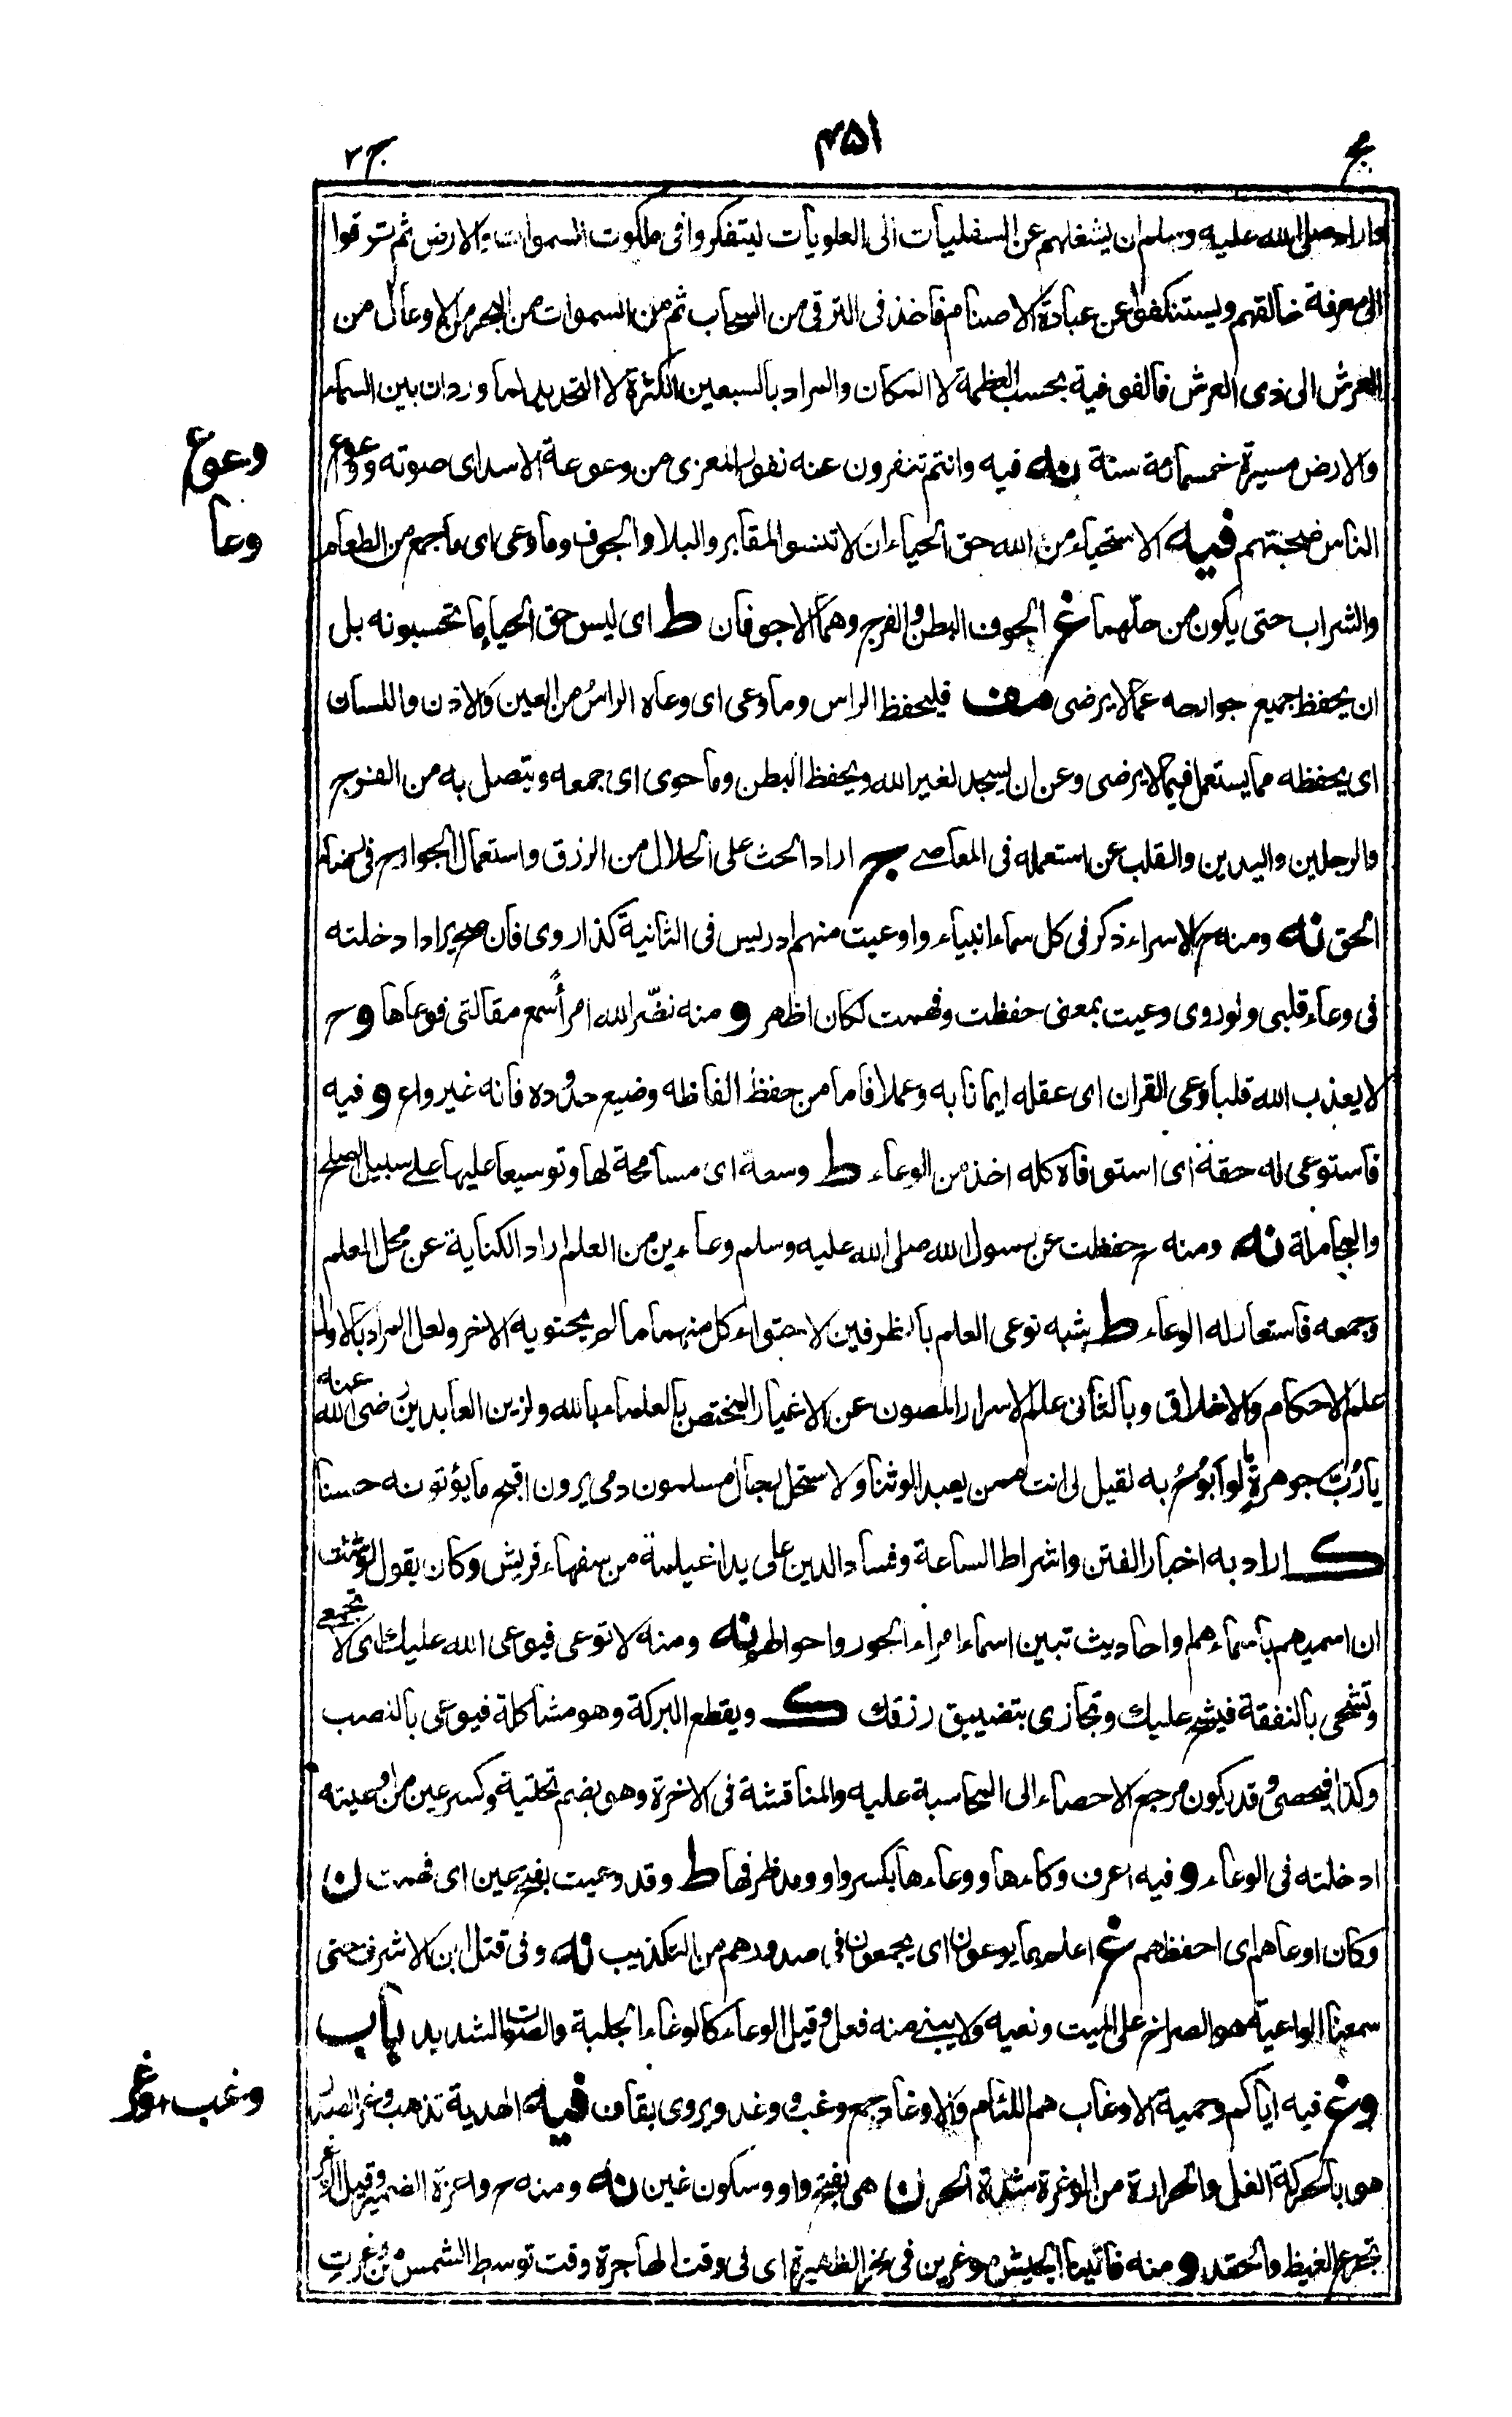 مج
۴۵۱
ج ۳
واراد صلى الله عليه وسلم ان يشغلهم عن السفليات الى العلويات ليتفكروا فى ملكوت السموات والارض ثم ترقوا
الى معرفة خالقهم ويستنكفوا عن عبادة الاصنام فاخذ فى الترقى من السحاب ثم من السموات من البحر من الاوعال من
العرش الى ذى العرش فالفوقية بحسب العظمة لا المكان والمراد بالسبعين الكثرة لا التحديد لما ورد ان بين السماء
والارض مسيرة خمسمائة سنة نه فيه وانتم تنفرون عنه نفور المعزى من وعوعة الاسد اى صوته ووعوع
وعوع
الناس ضجتهم فيه الاستحياء من الله حق الحياء ان لا تنسوا المقابر والبلا والجوف وما وعى اى ما جمع من الطعام
وعا
والشراب حتى يكون من حلهما غ الجوف البطن والفرج وهما الاجوفان ط اى ليس حق الحياء ما تحسبونه بل
ان يحفظ جميع جوارحه عما لا يرضى مف فليحفظ الراس وما وعى اى وعاه الراس من العين والاذن واللسان
اى يحفظه مما يستعمل فيما لا يرضى وعن ان يسجد لغير الله ويحفظ البطن وما حوى اى جمعه ويتصل به من الفرج
والرجلين واليدين والقلب عن استعمله فى المعاصى ج اراد الحث على الحلال من الرزق واستعمال الجوارح فى رضاء
الحق نه ومنه ح الاسراء ذكر فى كل سماء انبياء واوعيت منهم ادريس فى الثانية كذا روى فان صح يراد ادخلته
فى وعاء قلبى ولو روى وعيت بمعنى حفظت وفهمت لكان اظهر و منه نضّر الله امرأً سمع مقالتى فوعاها و ح
لا يعذب الله قلبا وعى القران اى عقله ايمانا به وعملا فاما من حفظ الفاظه وضيع حدوده فانه غير واع و فيه
فاستوعى له حقه اى استوفاه كله اخذ من الوعاء ط وسعة اى مسامحة لها وتوسيعا عليها على سبيل الصلح
والمجاملة نه ومنه ح حفظت عن رسول الله صلى الله عليه وسلم وعاءين من العلم اراد الكناية عن محل العلم
وجمعه فاستعار له الوعاء ط شبه نوعى العلم بالظرفين لاحتواء كل منهما ما لم يحتويه الاخر ولعل المراد بالاول
علم الاحكام والاخلاق وبالثانى علم الاسرار المصون عن الاغيار المختص بالعلماء بالله ولزين العابدين رضى الله عنه
يا رُبَّ جوهرةٍ لو ابوُحُ به لقيل لى انت ممن يعبد الوثنا ولاستحل رجال مسلمون دمى يرون اقبح ما يؤتونه حسنا
ك اراد به اخبار الفتن واشراط الساعة وفساد الدين على يد اغيلمة من سفهاء قريش وكان يقول لو شئت
ان اسميهم باسماءهم واحاديث تبين اسماء امراء الجور واحوالهم نه ومنه لا توعى فيوعى الله عليك اى لا تجمعى
وتشحى بالنفقة فيشح عليك وتجازى بتضييق رزقك ك ويقطع البركة وهو مشاكلة فيوعى بالنصب
وكذا فيحصى وقد يكون مرجع الاحصاء الى المحاسبة عليه والمناقشة فى الاخرة وهو بضم تحتية وكسر عين من اوعيته
ادخلته فى الوعاء و فيه اعرف وكاءها ووعاءها بكسر واو ومد ظرفها ط وقد وعيت بفتح عين اى فهمت ن
وكان اوعاهم اى احفظهم غ اعلم بما يوعون اى يجمعون فى صدورهم من التكذيب نه وفى قتل ابن الاشرف حتى
سمعنا الواعية هو الصراخ على الميت ونعيه ولا يبنى منه فعل وقيل الوعاء كالوغاء الجلبة والصوت الشديد باب
وغ فيه اياكم وحمية الاوغاب هم اللئام والاوغاد جمع وغب ووغد ويروى بقاف فيه الهدية تذهب وغر الصدر
وغب، وغر
هو بالحركة الغل والحرارة من الوغرة شدة الحر ن هى بفتح واو وسكون غين نه ومنه ح واغرة الضمير وقيل الوغر
تجرع الغيظ والحقد و منه فاتينا الجيش موغرين فى نحر الظهيرة اى فى وقت الهاجرة وقت توسط الشمس من وغرت